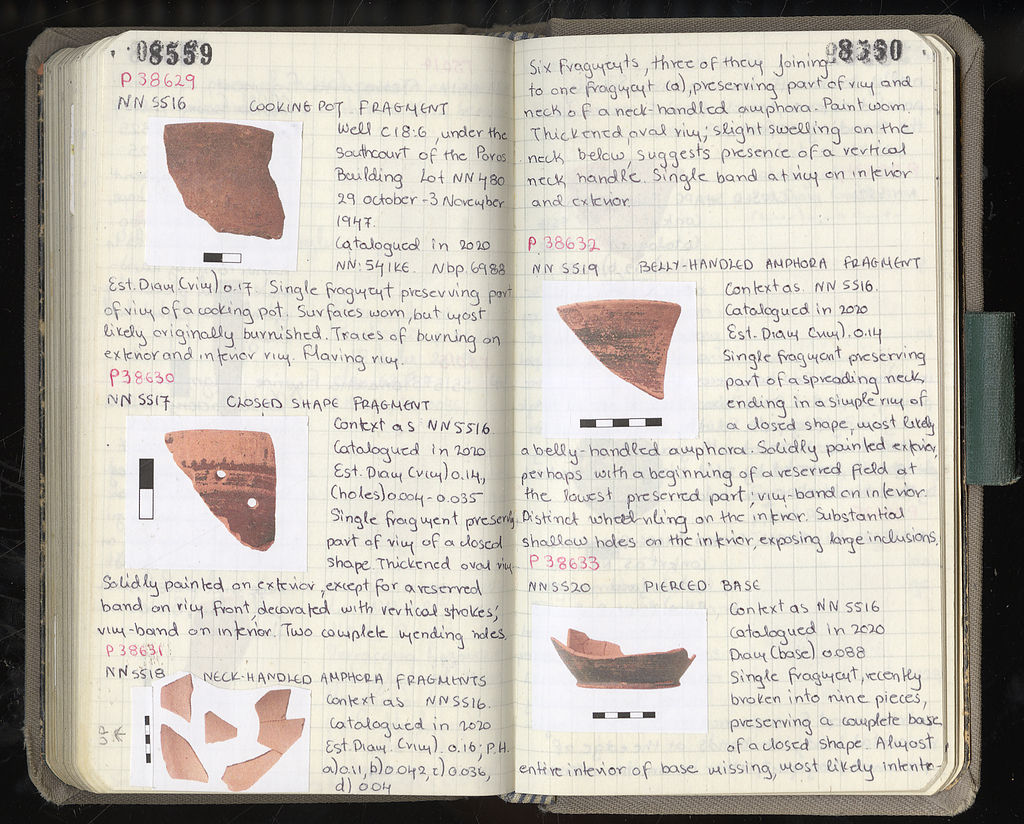 08559
P 38629
NN 5516 COOKING POT FRAGMENT
Well C18:6, under the
southcourt of the Poros
Building Lot NN 480
29 october - 3 November
1947.
Catalogued in 2020
NN: 541KE. Nbp. 6988
Est. Diam (rim) 0.17. Single fragment preserving part
of rim of a cooking pot. Surfaces worn, but most
likely originally burnished. Traces of burning on
exterior and interior rim. Flaring rim.
P38630
NN 5517 CLOSED SHAPE FRAGMENT
Context as NN5516
Catalogued in 2020
Est. Diam (rim) 0.14,
(holes) 0.004-0.035
Single fragment preserving
part of rim of a closed
shape. Thickened oval rim
Solidly painted on exterior, except for a reserved
band on rim front, decorated with vertical strokes;
rim-band on interior. Two complete mending holes.
P38631
NN5518 NECK-HANDLED AMPHORA FRAGMENTS
Context as NN5516.
Catalogued in 2020
Est. Diam. (rim). 0.16; P.H.
a) 0.11, b) 0.042, c) 0.036,
d) 0.04
08560
Six fragments, three of them joining
to one fragment (a), preserving part of rim and
neck of a neck-handled amphora. Paint worn.
Thickened oval rim; slight swelling on the
neck below, suggests presence of a vertical
neck handle. Single band at rim on interior
and exterior.
P 38632
NN 5519 BELLY-HANDLED AMPHORA FRAGMENT
Context as NN 5516.
Catalogued in 2020
Est. Diam (rim). 0.14
Single fragment preserving
part of a spreading neck
ending in a simple rim of
a closed shape, most likely
a belly-handled amphora. Solidly painted exterior,
perhaps with a beginning of a reserved field at
the lowest preserved part; rim-band on interior.
Distinct wheel-riling on the interior. Substantial
shallow holes on the interior, exposing large inclusions.
P38633
NN5520 PIERCED BASE
Context as NN 5516
Catalogued in 2020
Diam (base) 0.088
Single fragment, recently
broken into nine pieces,
preserving a complete base
of a closed shape. Almost
entire interior of base missing, most likely intentio-